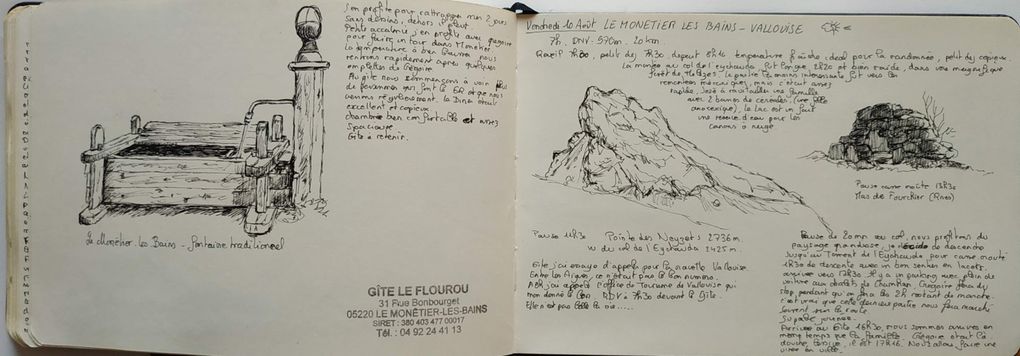 J'en profite pour rattraper mes 2 jours
sans dessins, dehors il pleut
Petite accalmie j'en profite avec Grégoire
pour faire un tour dans Monetier
la température a bien
rentrons rapidement après quelques
emplettes de Grégoire
Au gîte nous commençons à voir
de personnes qui font le GR et que nous
verrons régulièrement. le Diner était
excellent et copieux.
chambre bien confortable et assez
spacieuse
Gîte à retenir.
Le Monêtier les Bains - fontaine traditionnel
GÎTE LE FLOUROU
31 Rue Bonbourget
05220 LE MONÊTIER-LES-BAINS
SIRET : 380 403 477 00017
Tél. : 04 92 24 41 13
Vendredi 10 Août LE MONETIER LES BAINS - VALLOUISE
7h. DNV - 970m. 20km.
Réveil 7h00, petit dej 7h30, départ 8h15 température fraîche, idéal pour la randonnée, petit dej copieux.
La montée au col de l'eychauda fut longue 2h20 et bien raide, dans une magnifique
forêt de Mélèzes. la partie la moins intéressante fut vers les
remontées mécaniques, mais c'était assez
rapide,
avec 2 barres de céréales (une fille
anorexique). le lac est en fait
une réserve d'eau pour les
canons à neige
Pause 11h30 Pointe des Neyzets 2736m.
vu du col de l'Eychauda 2425m.
Pause casse croûte 13h30
Mas de Fourchier (Ruines)
Gîte, j'ai essayé d'appeler pour la navette Vallouise
Entre les Aigues, ce n'était pas le bon numéro
j'ai appelé l'office de Tourisme de Vallouise qui
m'on donné le bon RDV à 7h30 devant le Gîte.
Elle n'est pas belle la vie.....
Pause de 20mn au col, nous profitons du
paysage grandiose, je décide de descendre
jusqu'au Torrent de l'Eychauda pour casse croute
1h30 de descente avec un bon sentier en lacets.
arrivée vers 13h30. Il y a un parking avec plein de
voiture aux chalets de Chambran, Grégoire fera du
stop pendant qu'on fera les 2h restant de marche.
c'est vrai que cette dernière partie nous fera marcher
souvent sur la route
Superbe journée.
Arrivée au Gîte 16h30, nous sommes arrivés en
même temps que la famille. Grégoire était là
douche, lessive, il est 17h15. Nous allons faire une
virée en ville.